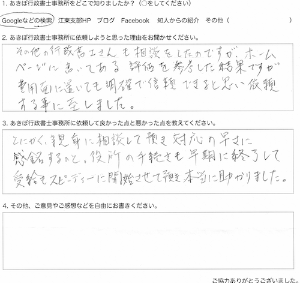 1. あきぼ行政書士事務所をどこで知りましたか？（○をしてください）
Googleなどの検索 江東支部HP ブログ Facebook 知人からの紹介 その他（ ）
2. あきぼ行政書士事務所に依頼しようと思った理由をお聞かせください。
その他の行政書士さんも相談をしたのですが、ホーム
ページに書いてある評価を参考した結果ですが
費用面に置いても明確で信頼できると思い依頼
する事に至しました。
3. あきぼ行政書士事務所に依頼して良かった点と悪かった点を教えてください。
とにかく、親身に相談して頂き対応の早さに
感銘するのと、役所の手続きも早期に終了して
受給もスピーディーに開始させて頂き本当に助かりました。
4. その他、ご意見やご感想などを自由にお書きください。
ご協力ありがとうございました。